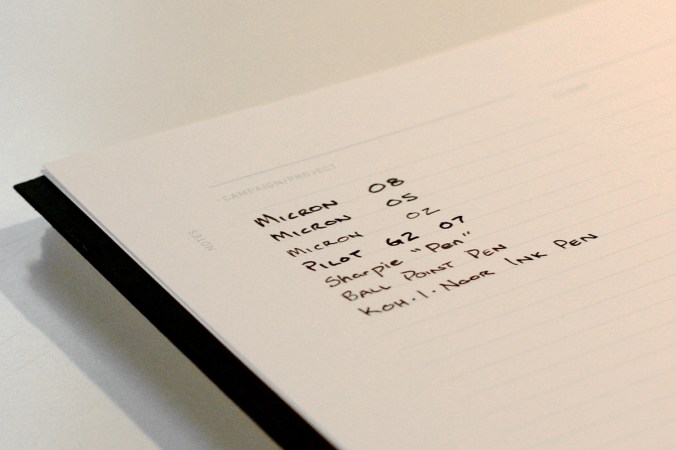 CAMPAIGN/PROJECT
NOTES
MICRON 08
MICRON 05
MICRON 02
PILOT G2 07
Sharpie "Pen"
BALL POINT PEN
KOH·I·NOOR INK PEN